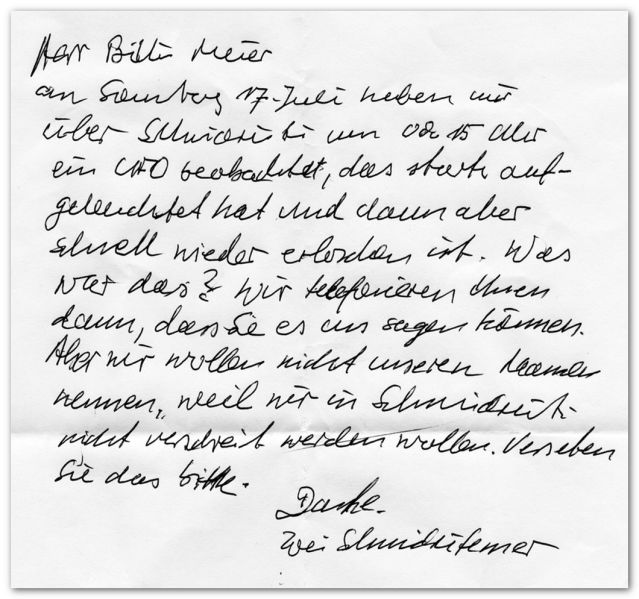 Herr Billi Meier
am Samstag 17. Juli haben wir
über Schmidrüti um 02 15 Uhr
ein UFO beobachtet, das stark auf-
geleuchtet hat und dann aber
schnell wieder erloschen ist. Was
war das? Wir telefonieren Ihnen
dann, dass Sie es uns sagen können.
Aber wir wollen nicht unseren Namen
nennen, weil wir in Schmidrüti
nicht verschreit werden wollen. Verstehen
Sie das bitte.
Danke.
zwei Schmidrütemer